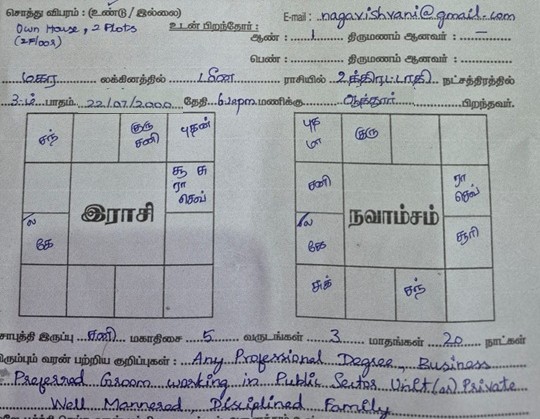 சொத்து விபரம் : (உண்டு / இல்லை)
E-mail : nagavishvani@gmail.com
Own House, 2 Plots
(2 Floor)
உடன் பிறந்தோர் :
ஆண் : 1 திருமணம் ஆனவர் : –
பெண் : திருமணம் ஆனவர் :
மகர லக்கினத்தில் மீன ராசியில் உத்திரட்டாதி நட்சத்திரத்தில்
3-ம் பாதம் 22/07/2000 தேதி மணிக்கு ஆத்தூர் பிறந்தவர்.
சந்
குரு
சனி
புதன்
சூ சு
ரா
செவ்
இராசி
ல
கே
புத
மா
குரு
சனி
ரா
செவ்
நவாம்சம்
ல
கே
சூரி
சுக்
சந்
சாபுத்தி இருப்பு சனி மகாதிசை 5 வருடங்கள் 3 மாதங்கள் 20 நாட்கள்
ிரும்பும் வரன் பற்றிய குறிப்புகள் : Any Professional Degree, Business
Preferred Groom working in Public Sector Unit (or) Private
Well Mannered, Disciplined Family